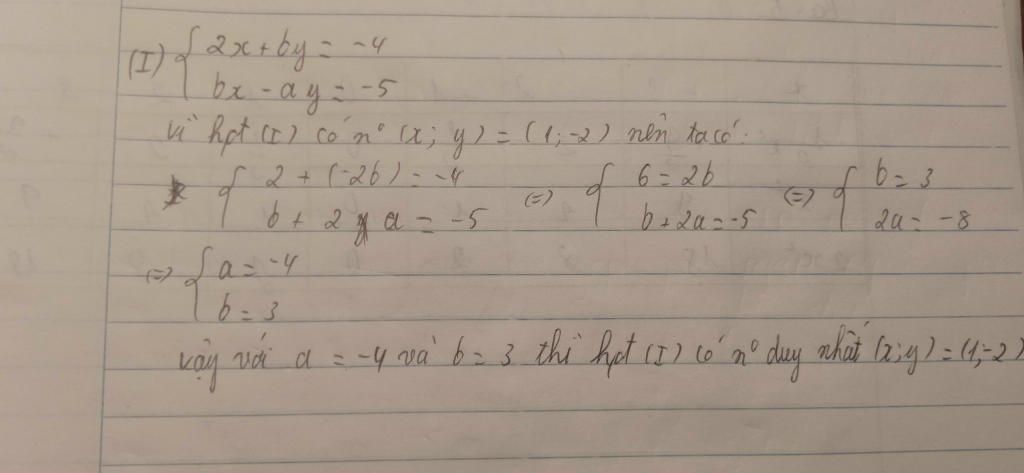 (I) { 2x + by = -4
bx - ay = -5
Vì hpt (I) có nº (x; y) = (1; -2) nên ta có:
{ 2 + (-2b) = -4 (=) { 6 = 2b (=) { b = 3
b + 2 a = -5 b + 2a = -5 2a = -8
(=) { a = -4
b = 3
vậy với a = -4 và b = 3 thì hpt (I) có nº duy nhất (x; y) = (1; -2)